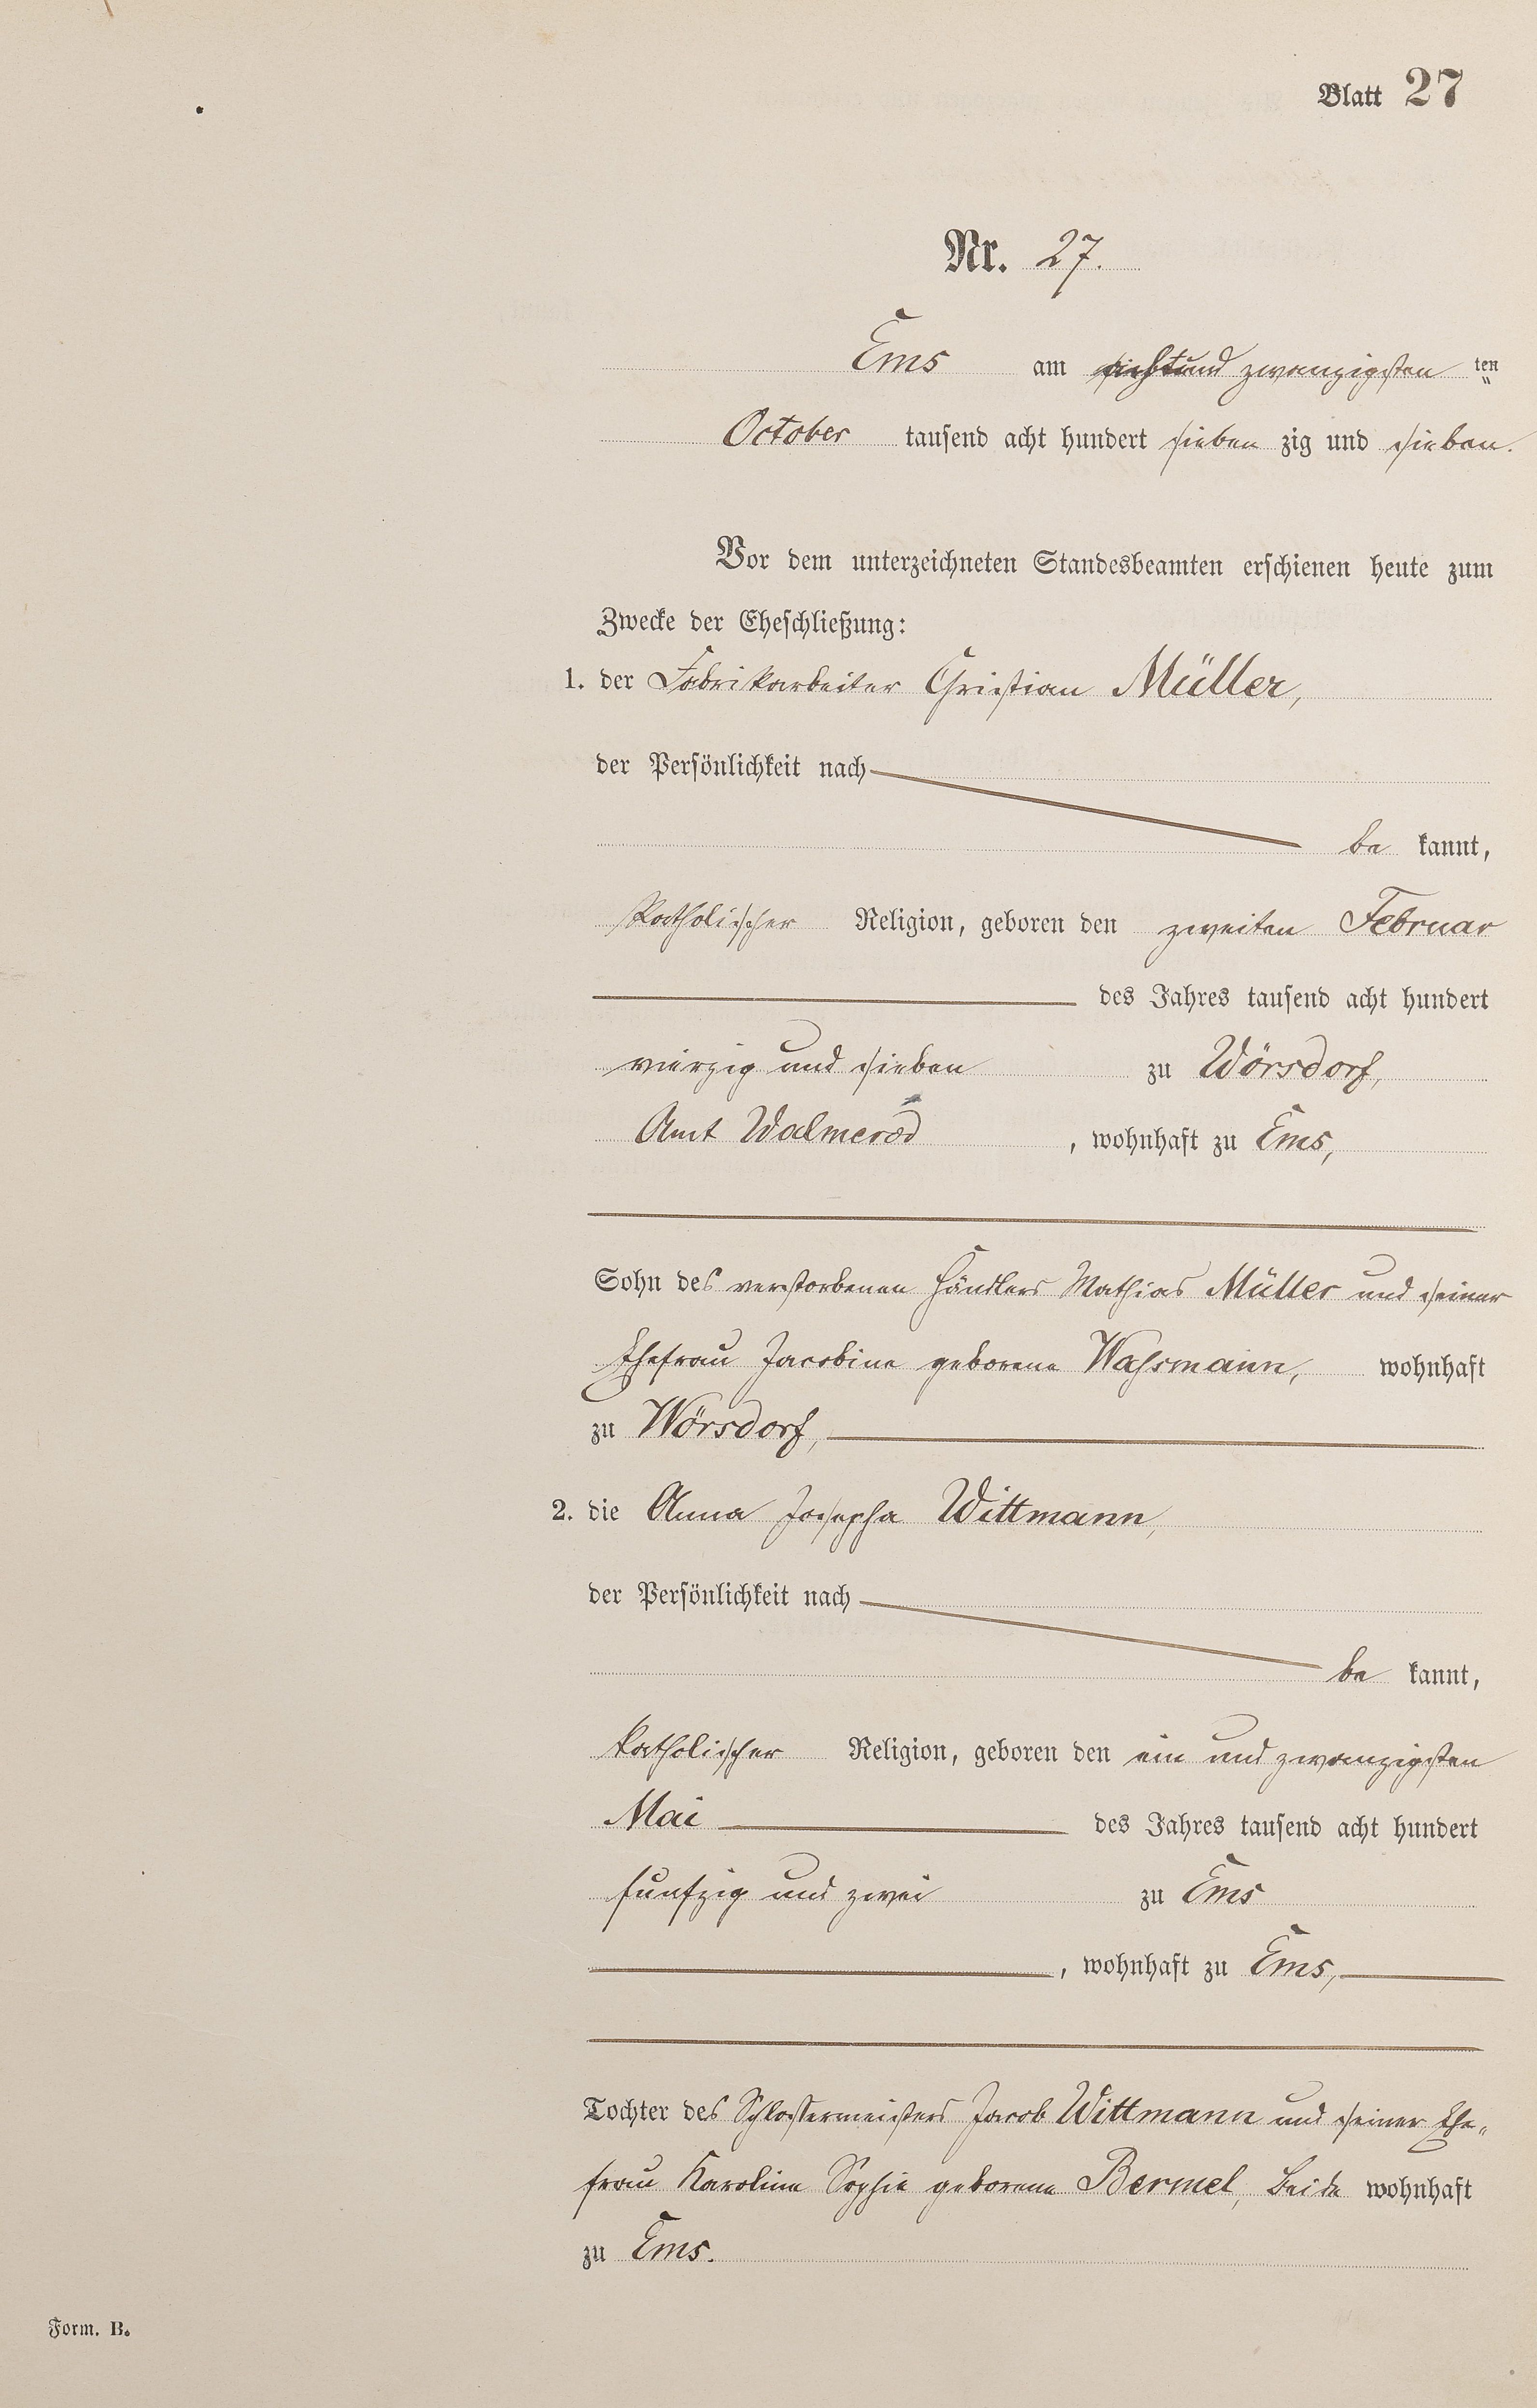 Blatt 27
Nr. 27.
Ems am und zwanzigsten ten
October tausend acht hundert sieben zig und sieben.
Vor dem unterzeichneten Standesbeamten erschienen heute zum
Zwecke der Eheschließung:
1. der Fabrikarbeiter Christian Müller,
der Persönlichkeit nach
be kannt,
katholischer Religion, geboren den zweiten Februar
des Jahres tausend acht hundert
vierzig und sieben zu Wörsdorf,
Amt Walmerod, wohnhaft zu Ems,
Sohn des verstorbenen Händlers Mathias Müller und seiner
Ehefrau Jacobine geborene Waßmann, wohnhaft
zu Wörsdorf,
2. die Anna Josepha Wittmann,
der Persönlichkeit nach
be kannt,
katholischer Religion, geboren den ein und zwanzigsten
Mai des Jahres tausend acht hundert
fünfzig und zwei zu Ems
, wohnhaft zu Ems,
Tochter des Schlossermeisters Jacob Wittmann und seiner Ehe„
frau Karoline Sophie geborene Bermel, beide wohnhaft
zu Ems.
Form. B.